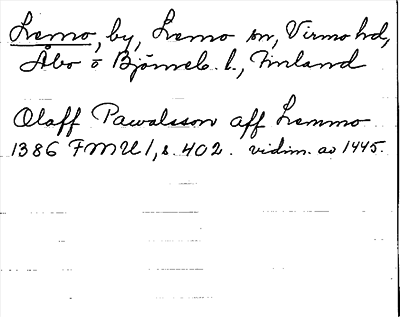 Lemo, by, Lemo sn, Virmo hd,
Åbo o Björneb. l., Finland
Olaff Pawalsson aff Lemmo
1386 FMU I, s. 402. vidim. av 1445.